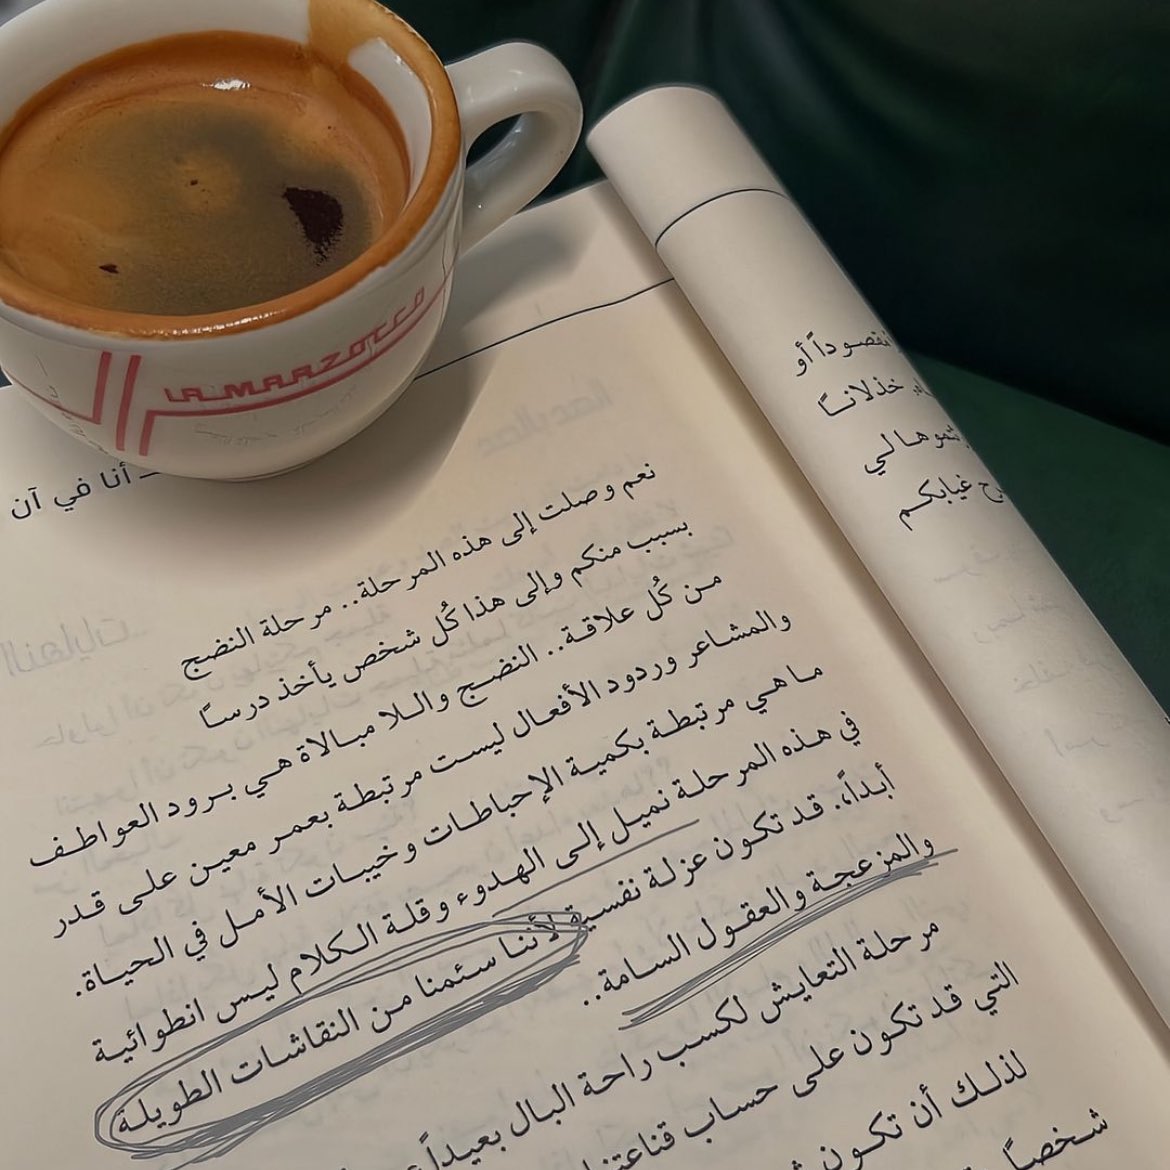 LA MARZOCCO
أنا في آن
نعم وصلت إلى هذه المرحلة.. مرحلة النضج
بسبب منكم وإلى هذا كُل شخص يأخذ درساً
من كُل علاقة.. النضج واللا مبالاة هي برود العواطف
والمشاعر وردود الأفعال ليست مرتبطة بعمر معين على قدر
ما هي مرتبطة بكمية الإحباطات وخيبات الأمل في الحياة.
في هذه المرحلة نميل إلى الهدوء وقلة الكلام ليس انطوائية
أبداً، قد تكون عزلة نفسية لأننا سئمنا من النقاشات الطويلة
والمزعجة والعقول السامة..
مرحلة التعايش لكسب راحة البال بعيداً
التي قد تكون على حساب
لذلك أن تكون
شخصاً
أو
خذلاناً
لي
غيابكم